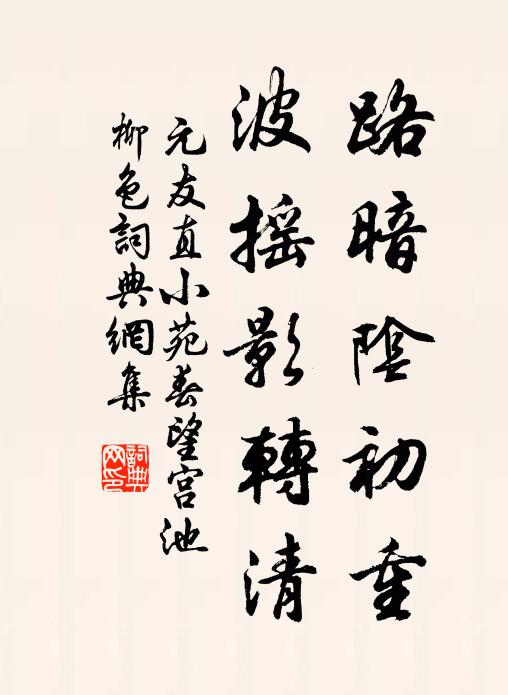 路暗陰初重
波摇影轉清
元友直小苑春望宫池
柳色詞典網集
詞典网印